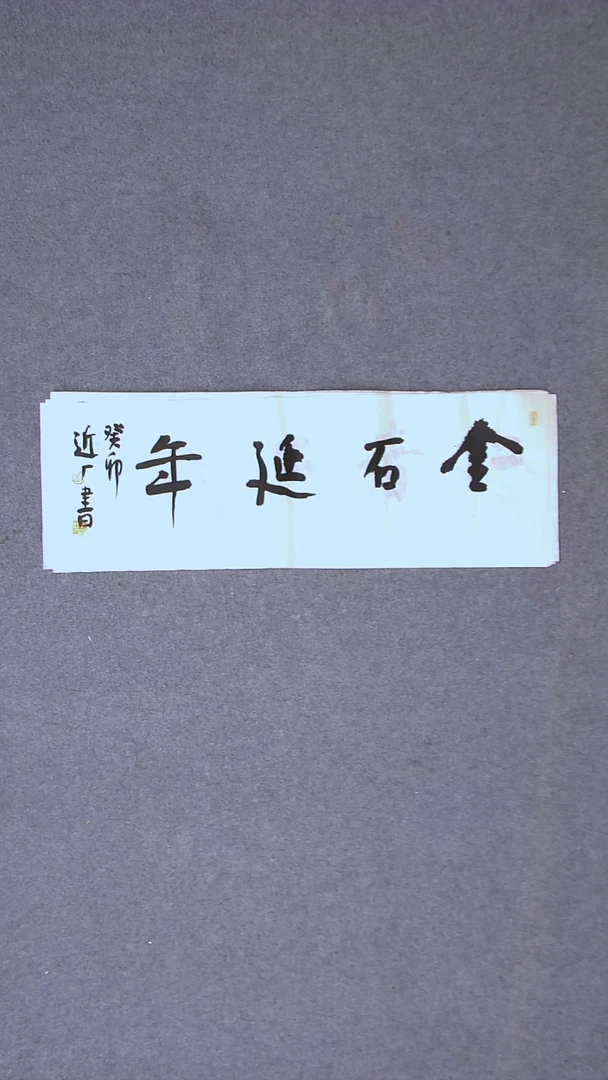 金石延年
癸卯
近厂書